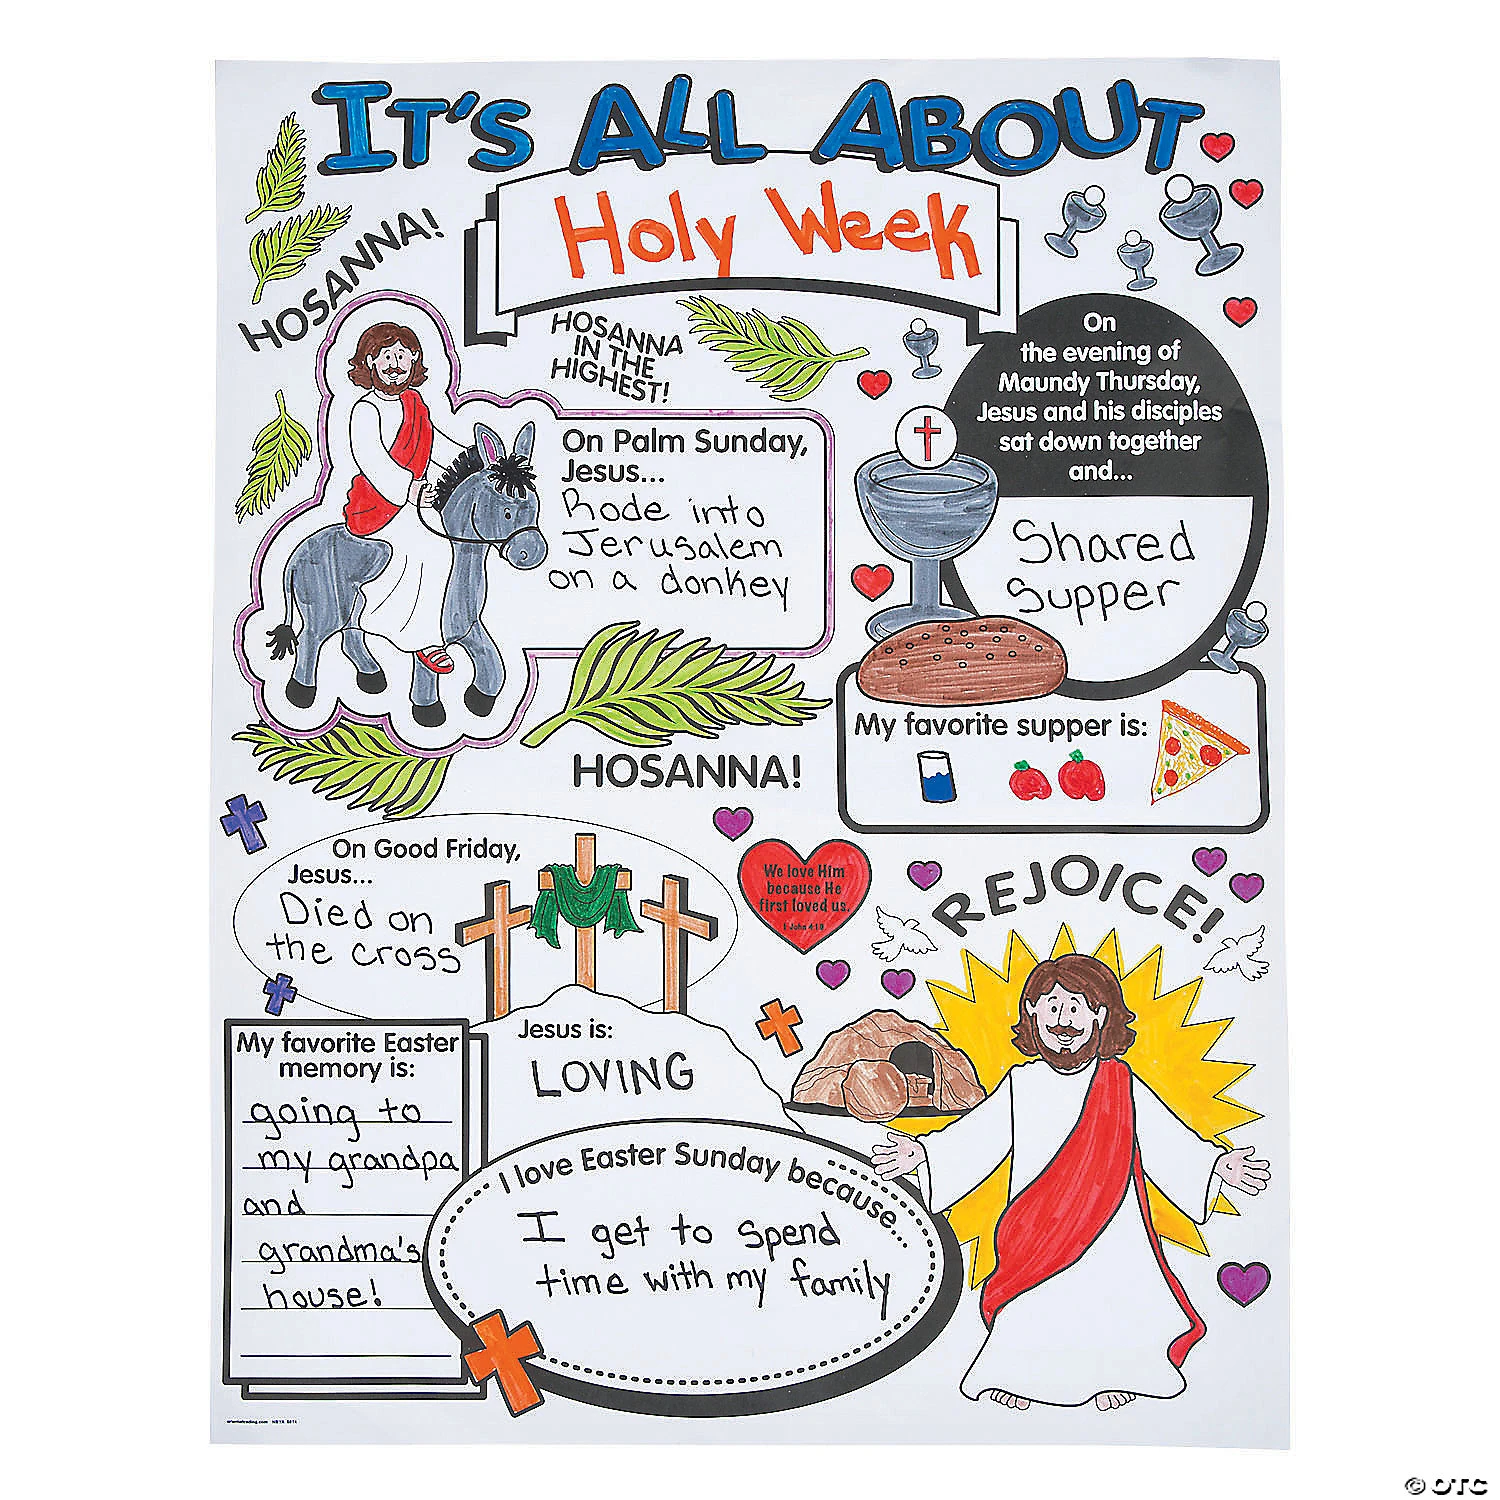 IT'S ALL ABOUT
Holy Week
HOSANNA!
HOSANNA
IN THE
HIGHEST!
On Palm Sunday,
Jesus...
Rode into
Jerusalem
on a donkey
On
the evening of
Maundy Thursday,
Jesus and his disciples
sat down together
and...
Shared
Supper
My favorite supper is:
HOSANNA!
On Good Friday,
Jesus...
Died on
the cross
We love Him
because He
first loved us.
1 John 4:19
REJOICE!
My favorite Easter
memory is:
going to
my grandpa
and
grandma's
house!
Jesus is:
LOVING
I love Easter Sunday because...
I get to spend
time with my family
orientaltrading.com
© OTC